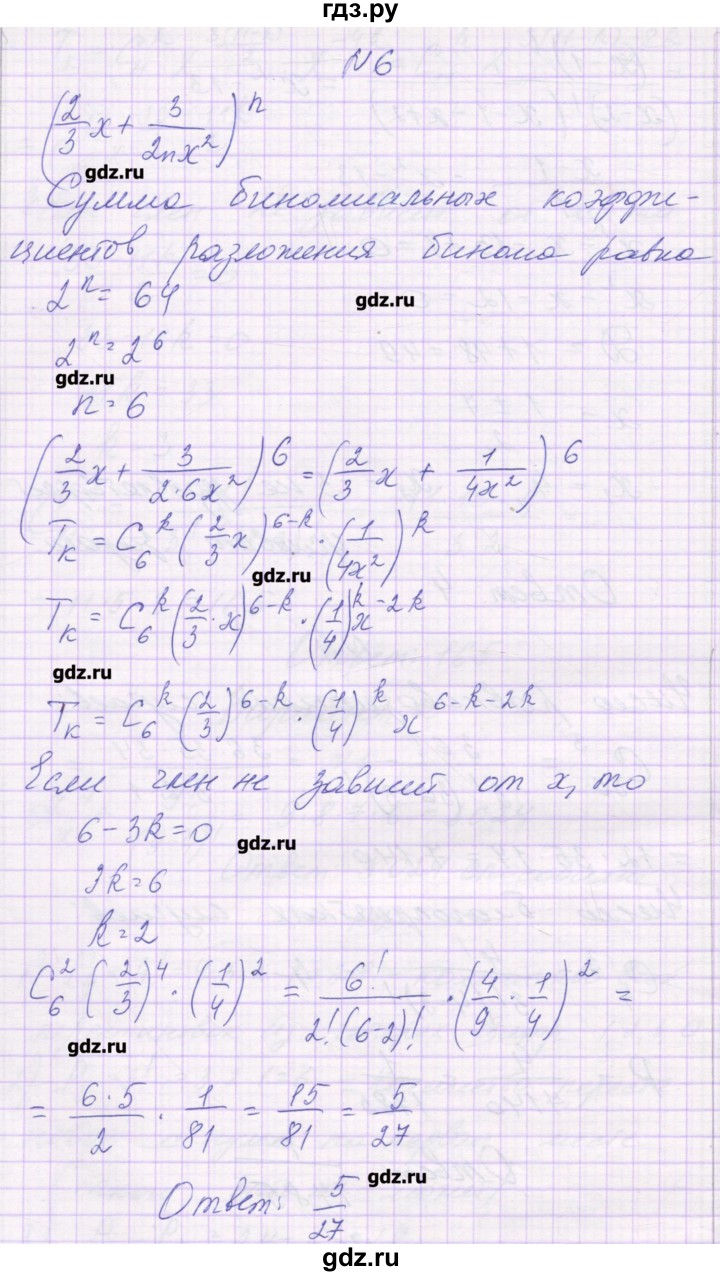 гдз.ру
№6
(2/3 x + 3/(2nx²))ⁿ
gdz.ru
Сумма биномиальных коэффи-
циентов разложения бинома равна
2ⁿ = 64
gdz.ru
2ⁿ = 2⁶
gdz.ru
n = 6
(2/3 x + 3/(2·6x²))⁶ = (2/3 x + 1/(4x²))⁶
Tₖ = C₆ᵏ (2/3 x)⁶⁻ᵏ · (1/(4x²))ᵏ
gdz.ru
Tₖ = C₆ᵏ (2/3 · x)⁶⁻ᵏ · (1/4)ᵏ x⁻²ᵏ
gdz.ru
Tₖ = C₆ᵏ (2/3)⁶⁻ᵏ · (1/4)ᵏ x⁶⁻ᵏ⁻²ᵏ
Если член не зависит от x, то
6 - 3k = 0
gdz.ru
3k = 6
k = 2
C₆² (2/3)⁴ · (1/4)² = 6!/(2!(6-2)!) · (4/9 · 1/4)² =
gdz.ru
= (6·5)/2 · 1/81 = 15/81 = 5/27
gdz.ru
Ответ: 5/27
gdz.ru